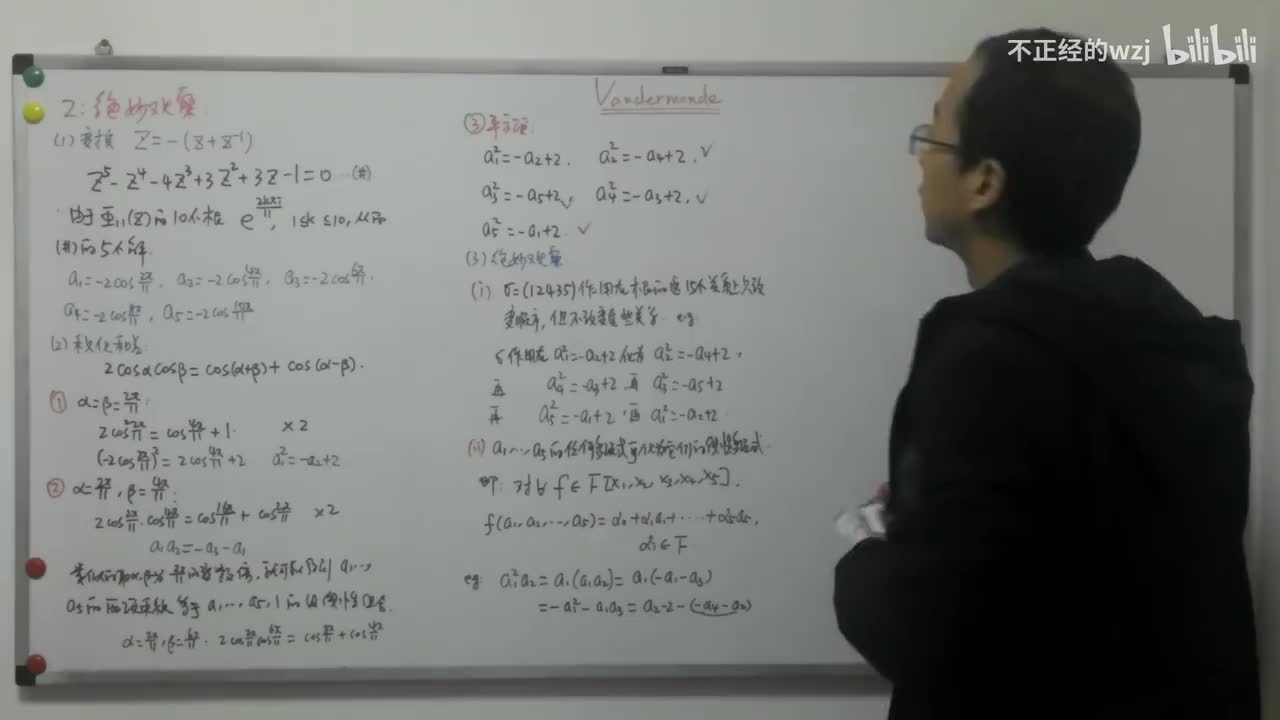 不正经的wzj bilibili
Vandermonde
2:绝妙观察
(1) 变换 Z=-(z+z⁻¹)
Z⁵-Z⁴-4Z³+3Z²+3Z-1=0 (#)
由于Φ₁₁(z)的10个根 e^{2kπi/11}, 1≤k≤10, 从而
(#)的5个解
a₁=-2cos 2π/11, a₂=-2cos 4π/11, a₃=-2cos 6π/11,
a₄=-2cos 8π/11, a₅=-2cos 10π/11
(2) 积化和差
2cosαcosβ=cos(α+β)+cos(α-β).
① α=β=2π/11:
2cos² 2π/11=cos 4π/11+1 ×2
(-2cos 2π/11)²=2cos 4π/11+2 a₁²=-a₂+2
② α=2π/11, β=4π/11:
2cos 2π/11·cos 4π/11=cos 6π/11+cos 2π/11 ×2
a₁a₂=-a₃-a₁
a₁…
a₅的两项乘积等于a₁,…,a₅,1的线性组合.
2cos cos = cos 8π/11+cos 4π/11
③平方项:
a₁²=-a₂+2, a₂²=-a₄+2, ✓
a₃²=-a₅+2, ✓ a₄²=-a₃+2, ✓
a₅²=-a₁+2. ✓
(3) 绝妙观察
(i) σ=(12435)作用在根的这15个关系上只改
变顺序,但不改变这些关系. eg
σ作用在a₁²=-a₂+2化为a₂²=-a₄+2,
再 a₄²=-a₃+2,再 a₃²=-a₅+2
再 a₅²=-a₁+2,再 a₁²=-a₂+2
(ii) a₁,…,a₅的任何多项式可化为它们的线性多项式
即:对∀ f∈F[x₁,x₂,x₃,x₄,x₅],
f(a₁,a₂,…,a₅)=α₀+α₁a₁+……+α₅a₅,
αᵢ∈F
eg: a₁²a₂=a₁(a₁a₂)=a₁(-a₁-a₃)
=-a₁²-a₁a₃=a₂-2-(-a₄-a₂)